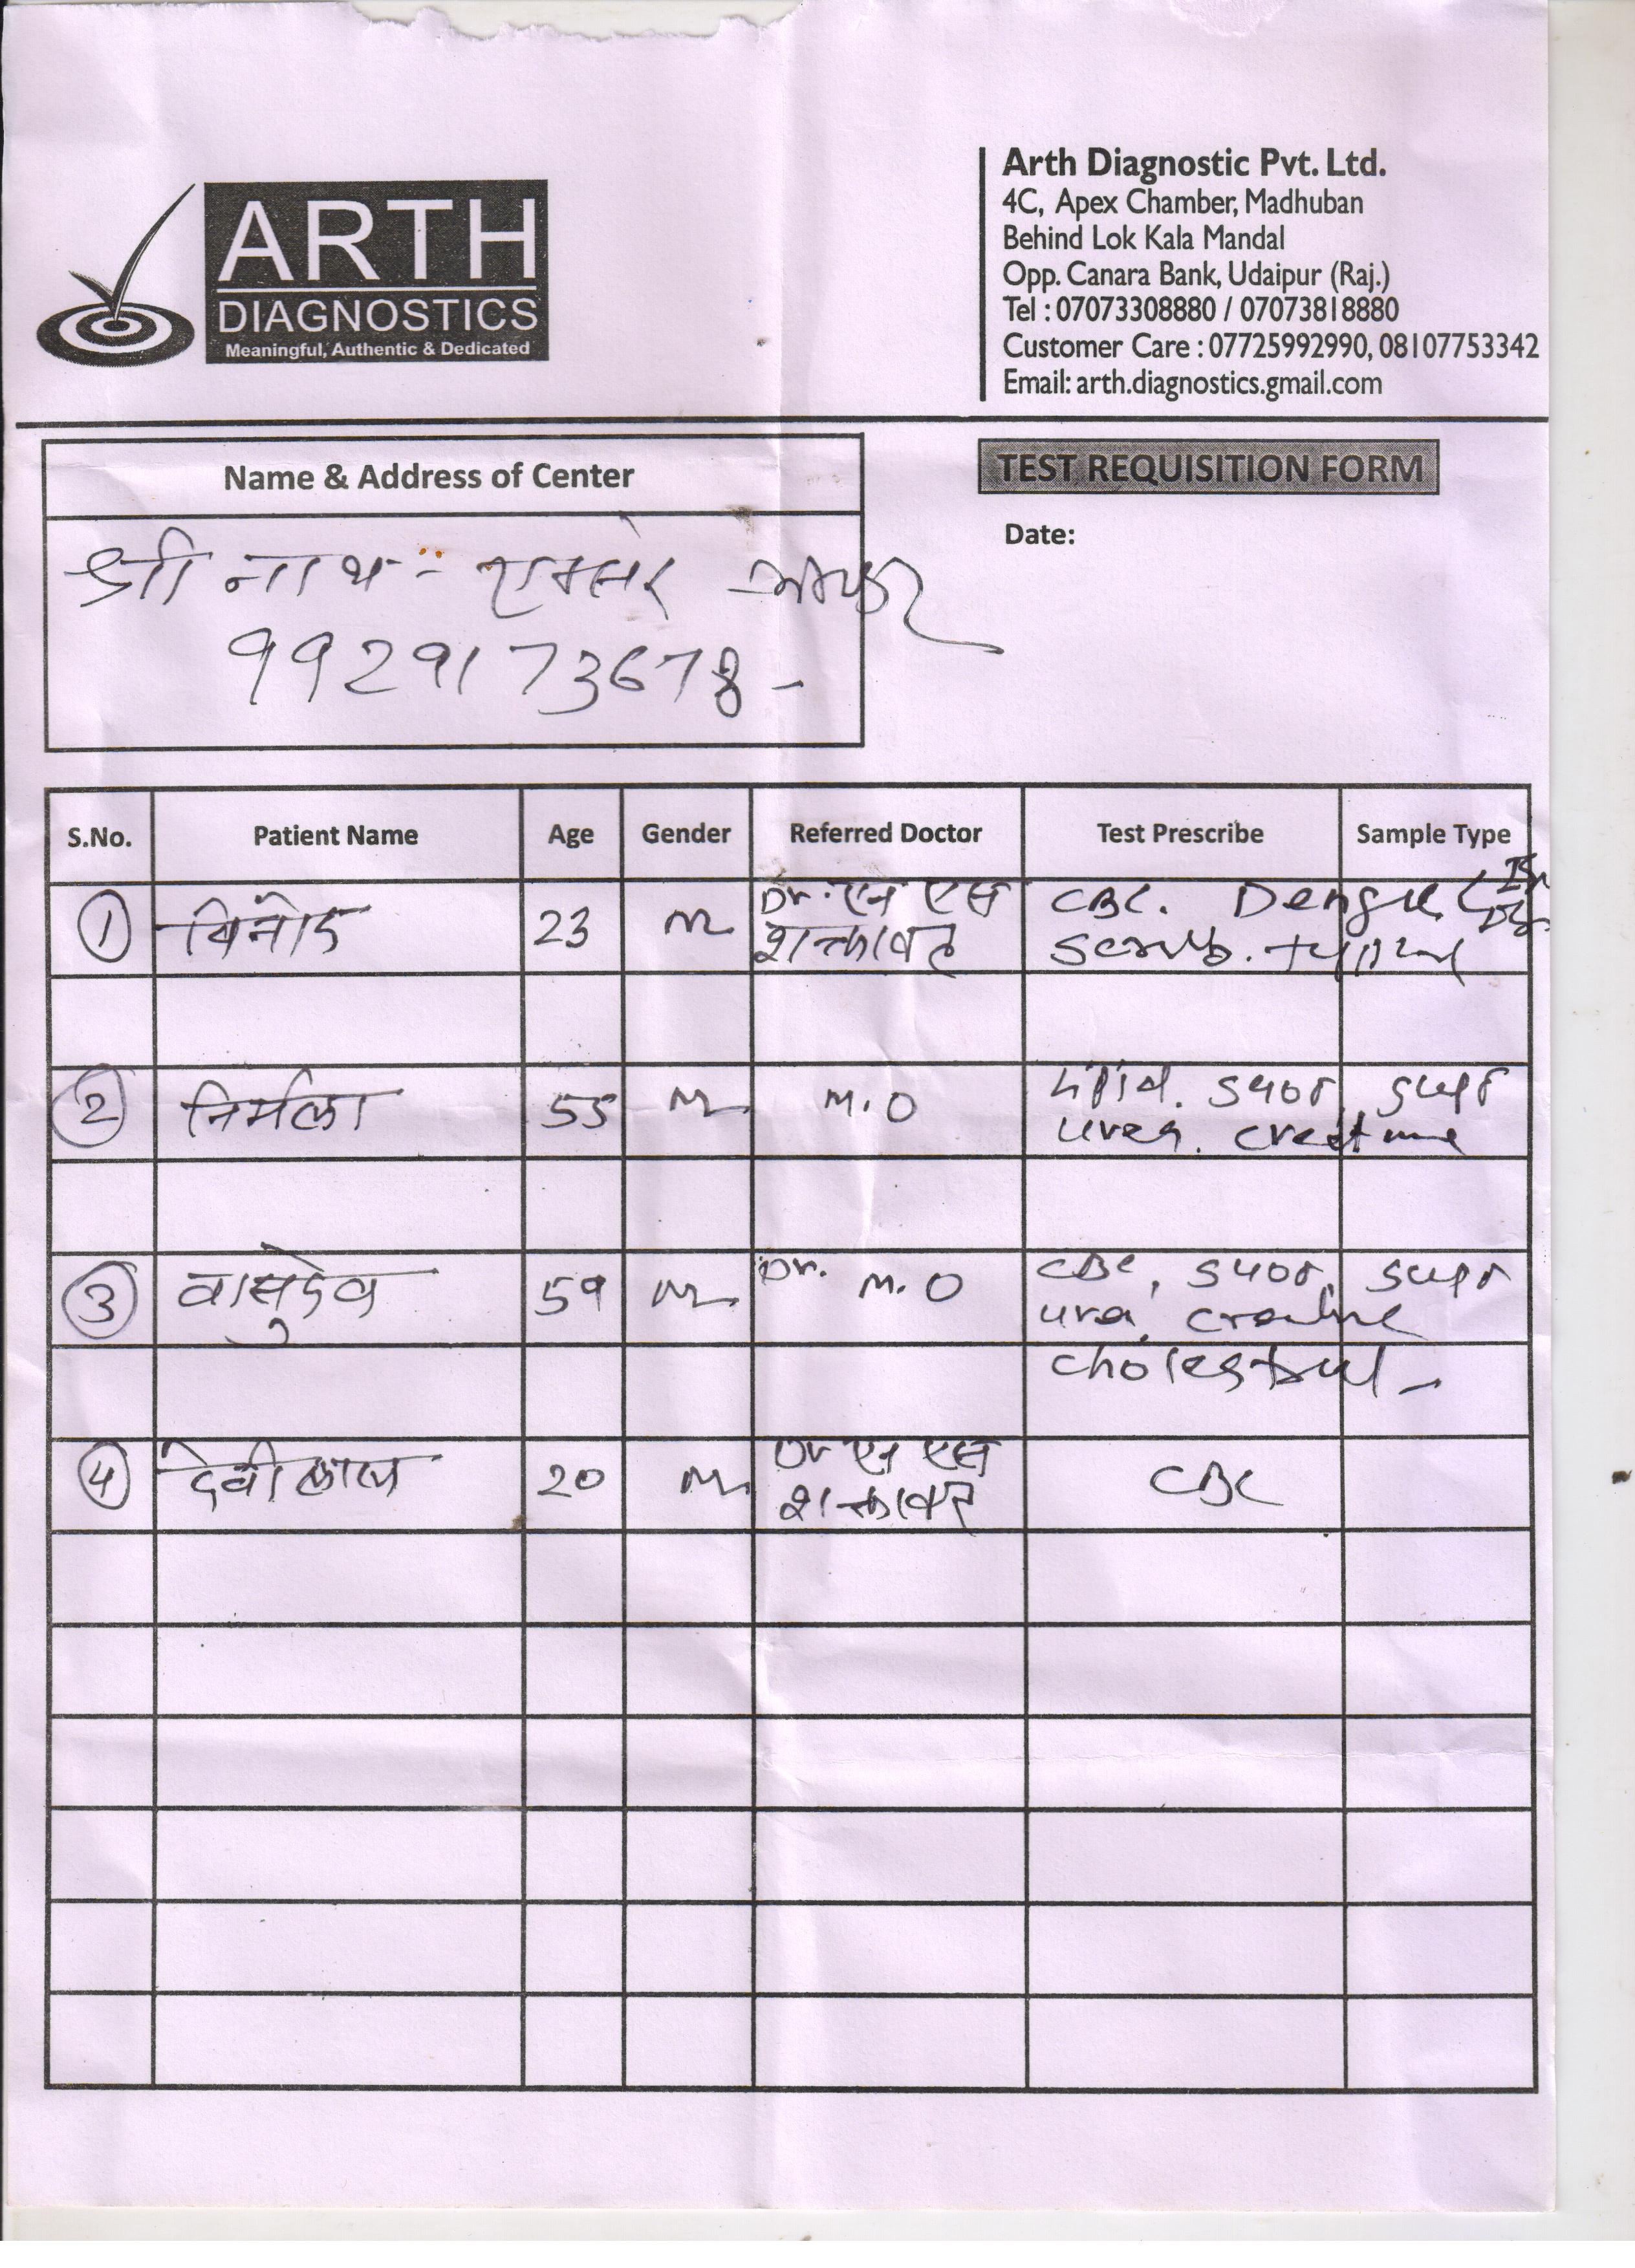 ARTH
DIAGNOSTICS
Meaningful, Authentic & Dedicated
Arth Diagnostic Pvt. Ltd.
4C, Apex Chamber, Madhuban
Behind Lok Kala Mandal
Opp. Canara Bank, Udaipur (Raj.)
Tel : 07073308880 / 07073818880
Customer Care : 07725992990, 08107753342
Email: arth.diagnostics.gmail.com
Name & Address of Center
TEST REQUISITION FORM
Date:
श्री नाथ
9929173678
S.No. Patient Name Age Gender Referred Doctor Test Prescribe Sample Type
1 विनोद 23 M Dr. एन एस CBC. Dengue
शक्तावत scrub.
2 निर्मला 55 M M.O Lipid.
urea.
3 वासुदेव 59 M Dr. M.O CBC,
4 देवीलाल 20 M Dr एन एस
शक्तावत CBC